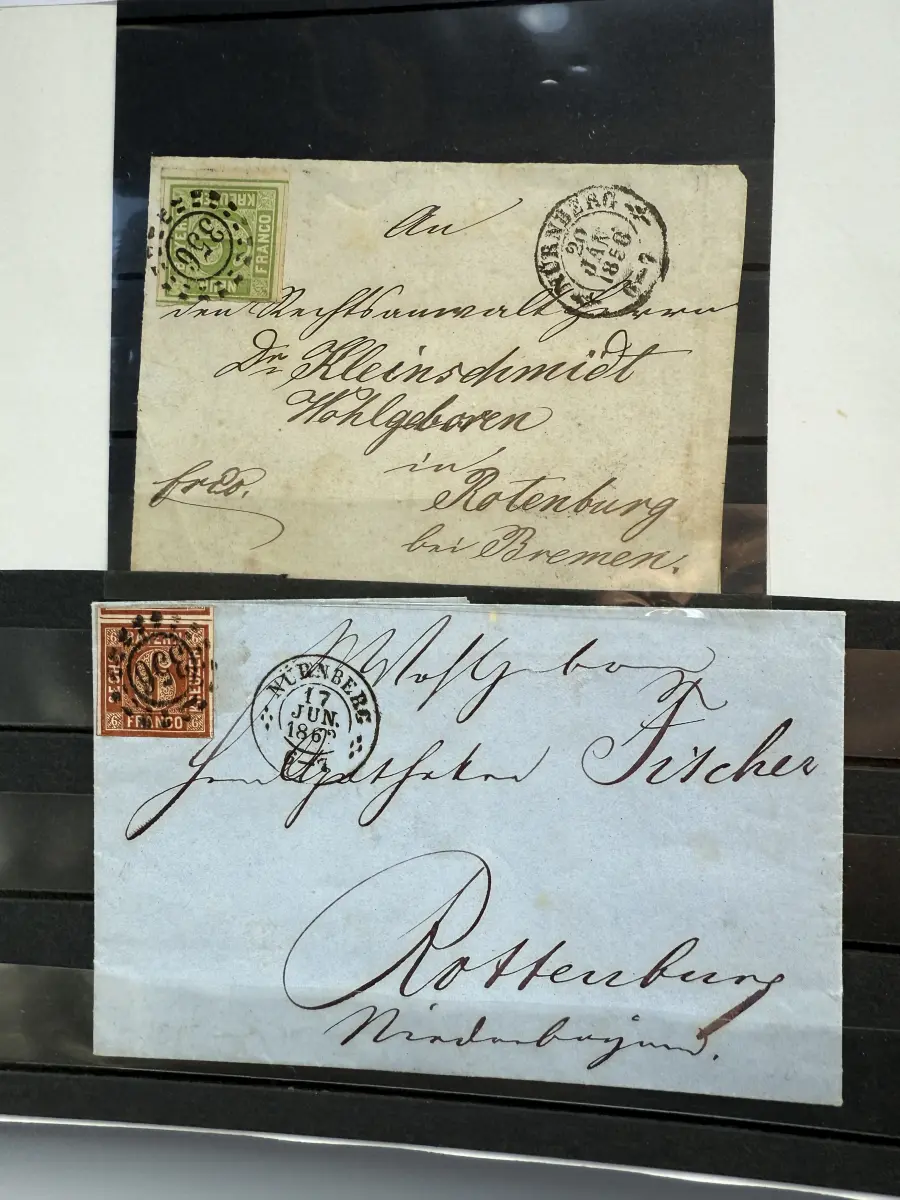 KREUZER
BAYERN
9
NEUN
FRANCO
356
NÜRNBERG
20
JAN
1856
An
den Rechtsanwalt Herrn
Dr. Kleinschmidt
Wohlgeboren
in
Rotenburg
frco.
bei Bremen.
BAYERN
SECHS
6
FRANCO
NÜRNBERG
17
JUN.
Wohlgeboren
Herrn Apotheker Fischer
Rottenburg
Niederbayern.